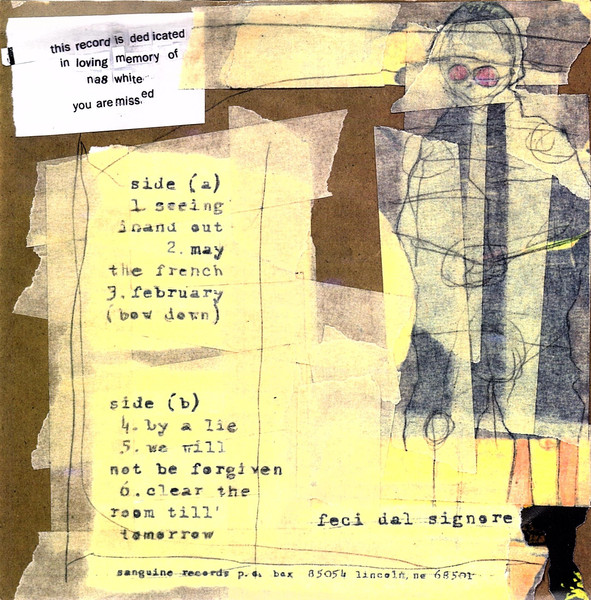 this record is dedicated
in loving memory of
na8 white
you are missed
side (a)
1. seeing
inand out
2. may
the french
3. february
(bow down)
side (b)
4. by a lie
5. we will
not be forgiven
6. clear the
room till'
tomorrow
feci dal signore
sanguine records p.o. box 85054 lincoln, ne 68501